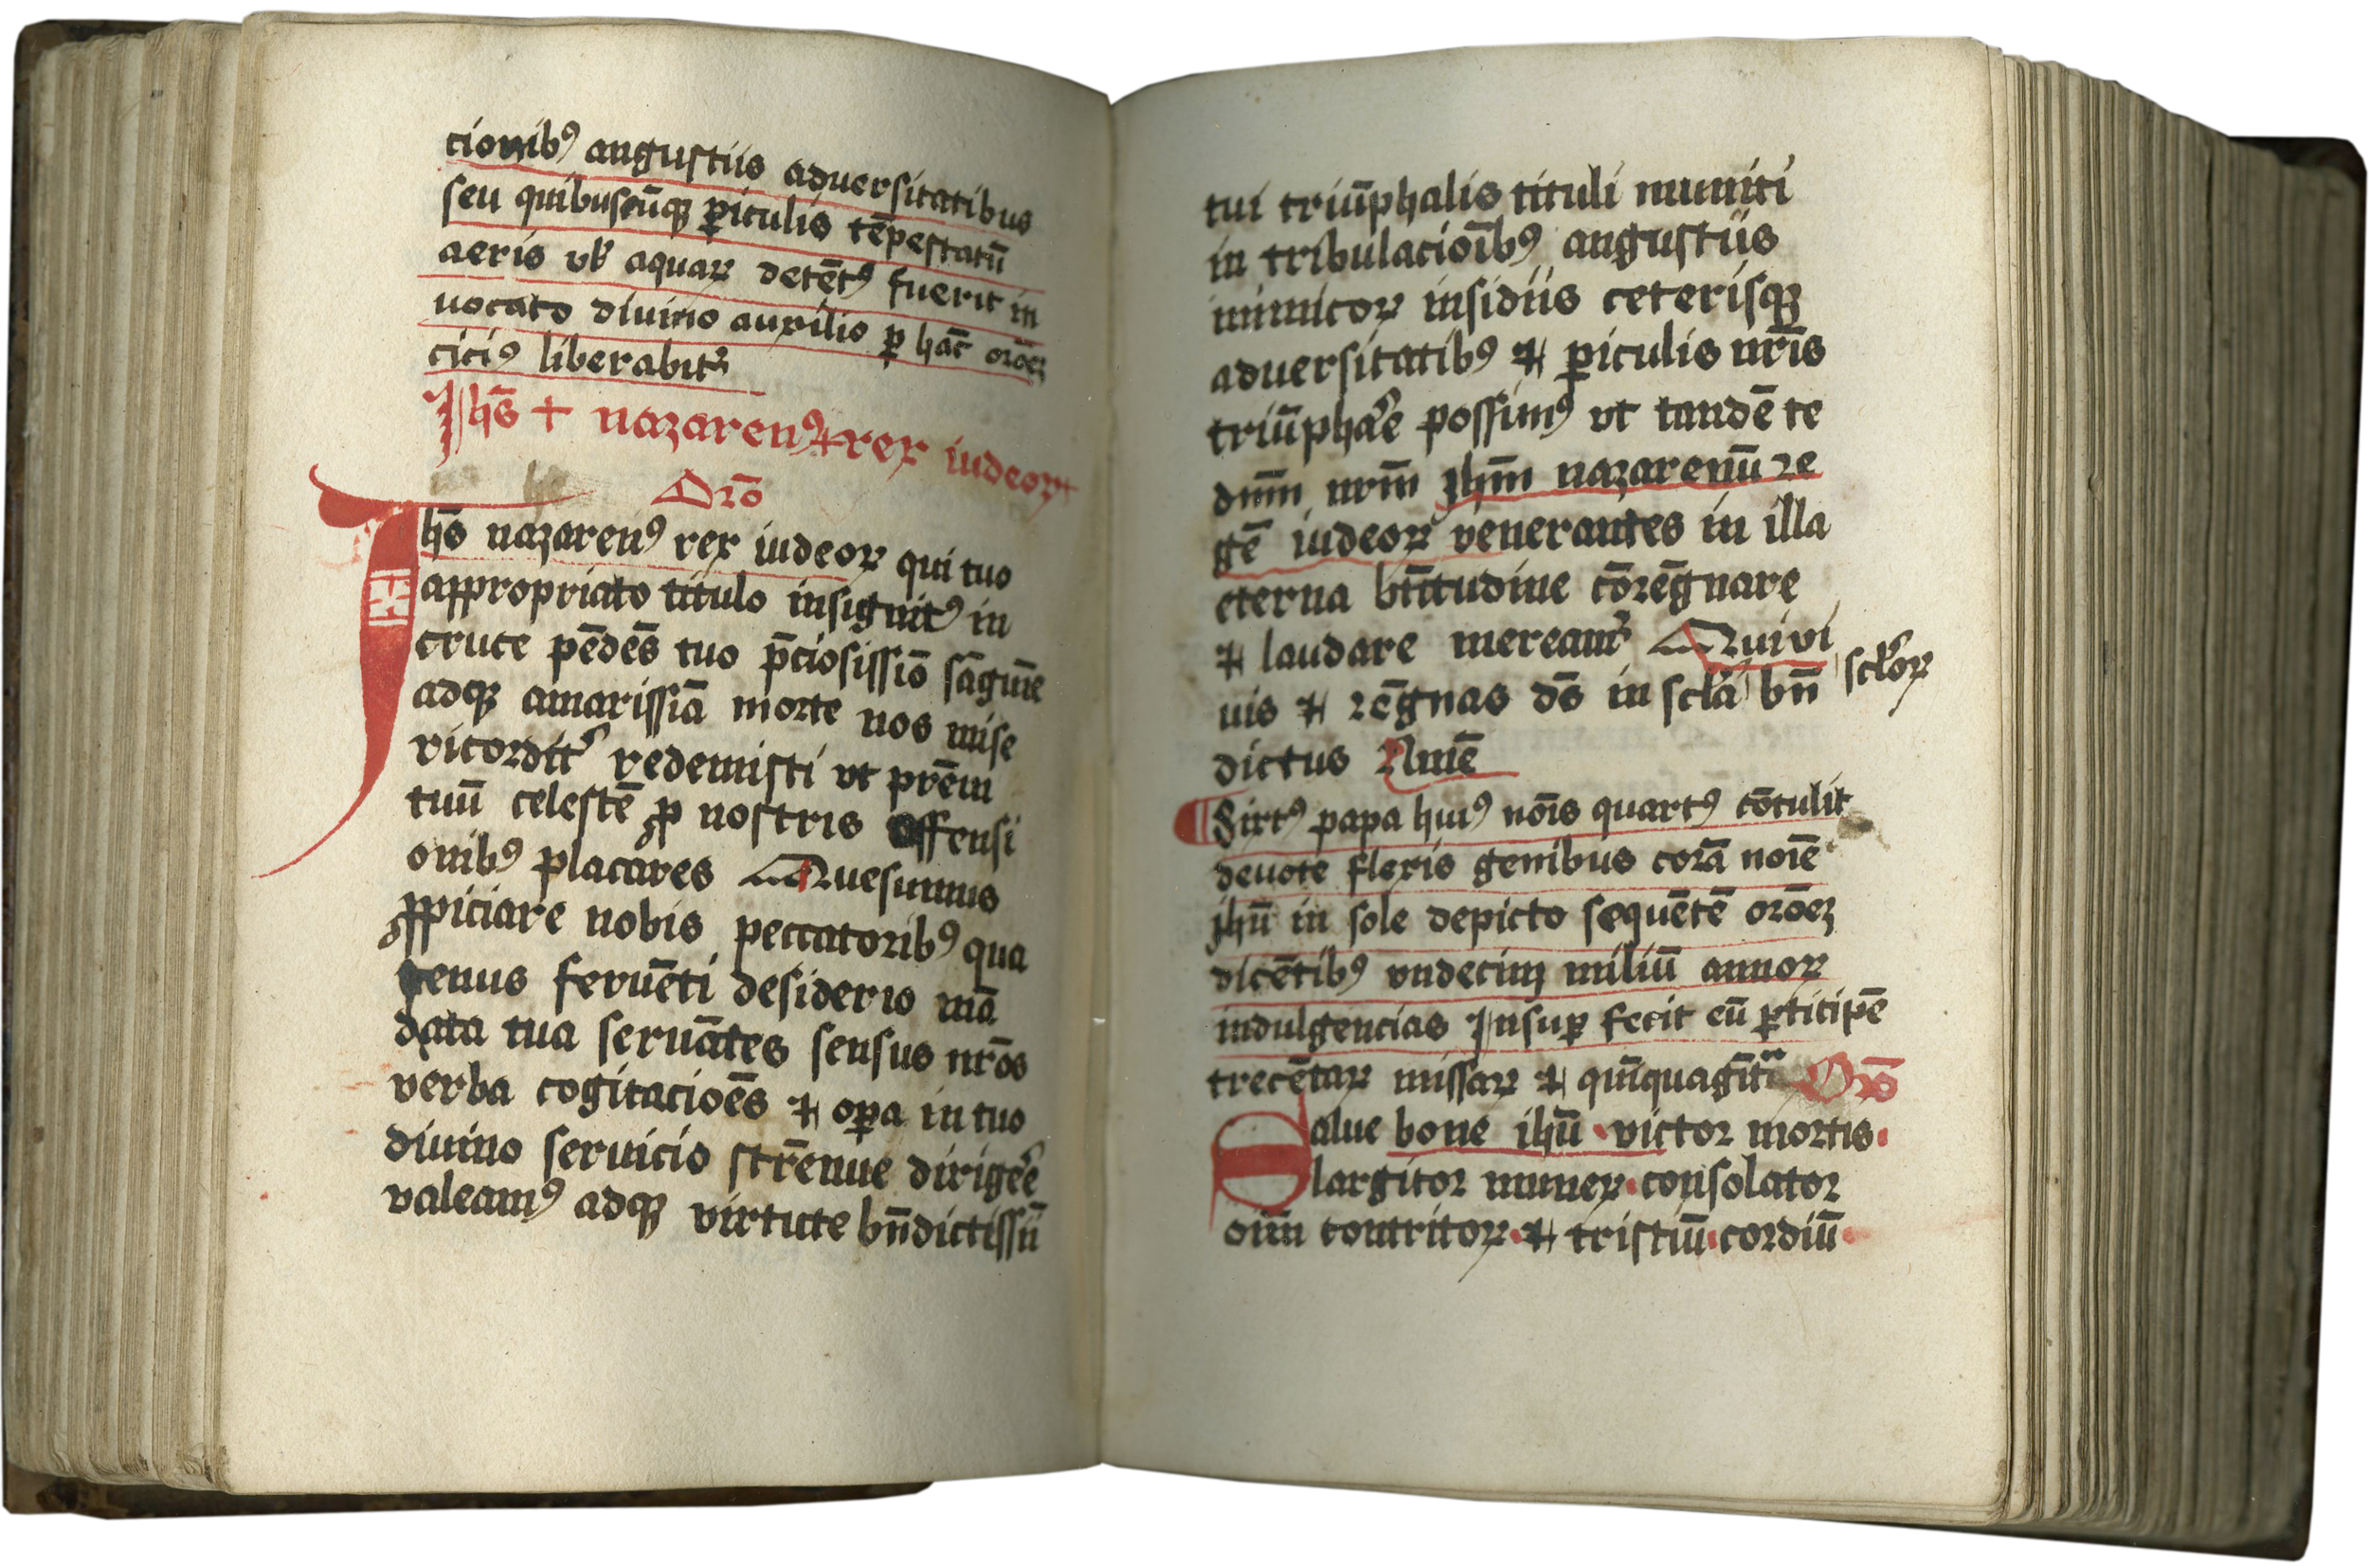 cionibꝰ angustiis aduersitatibus
seu quibuscūqꝫ ꝑiculis tēpestatū
aeris vƚ aquaꝝ detētꝰ fuerit in
uocato diuino auxilio ꝑ hāc orōeꝫ
ciciꝰ liberabitᷣ
Jhs̄ + nazarenꝰ + rex iudeoꝝ +
Orō
Jhs̄ nazarenꝰ rex iudeoꝝ qui tuo
appropriato titulo insignitꝰ in
cruce pēdēs tuo p̄ciosissiō sāguīe
adqꝫ amarissiā morte nos mise
ricorditᷣ redemisti vt prēm
tuū celestē ꝓ nostris offensi
onibꝰ placares Quesumus
ꝓpiciare nobis peccatoribꝰ qua
tenus feruēti desiderio mā
data tua seruātes sensus nrōs
verba cogitacioēs ⁊ oꝑa in tuo
diuino seruicio strēnue dirigeᷣe
valeamꝰ adqꝫ virtute bn̄dictissī
tui triūphalis tituli muniti
in tribulacioībꝰ angustiis
inimicoꝝ insidiis ceterisqꝫ
aduersitatibꝰ ⁊ ꝑiculis nrīs
triūphaᷣe possimꝰ vt tandē te
dnm̄ nrm̄ Jhm̄ nazarenū re
gē iudeoꝝ venerantes in illa
eterna btītudine cōrēgnare
⁊ laudare mereamᷣ Qui vi
uis ⁊ rēgnas ds̄ in scƚa scƚoꝝ bn̄
dictus Amē
Sixtꝰ papa huiꝰ noīs quartꝰ cōtulit
deuote flexis genibus corā noīe
jhū in sole depicto sequētē orōeꝫ
dicētibꝰ vndecim miliū annoꝝ
indulgencias Jnsuꝑ fecit eū ꝑticipē
trecētaꝝ missaꝝ ⁊ quīquagītᵃ Orō
Salue bone ihū · victor mortis ·
largitor muneꝝ · consolator
oīm contritoꝝ · ⁊ tristiū · cordiū ·